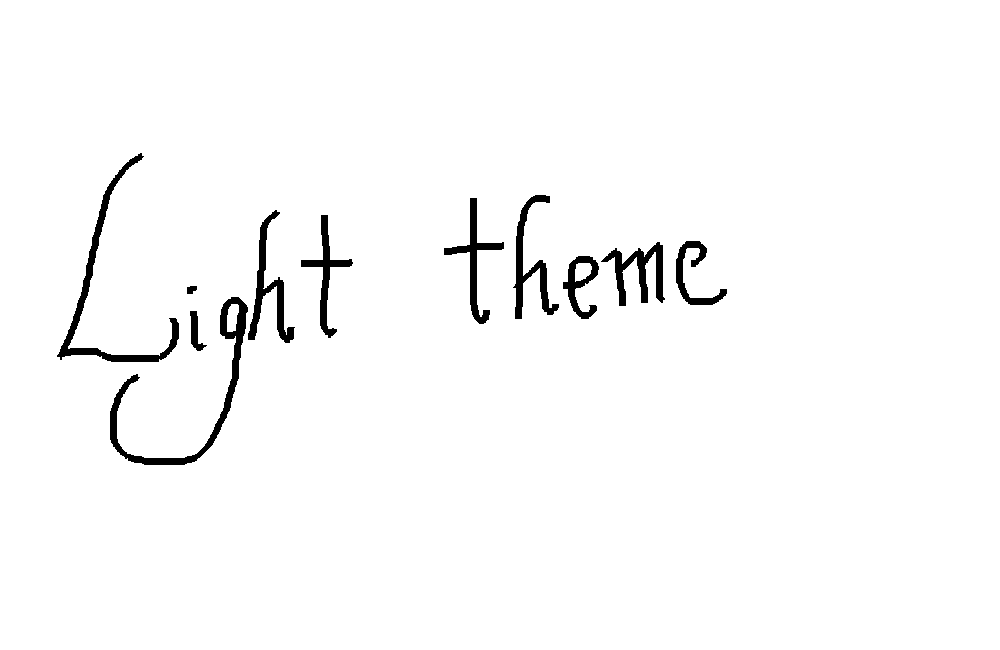 Light theme